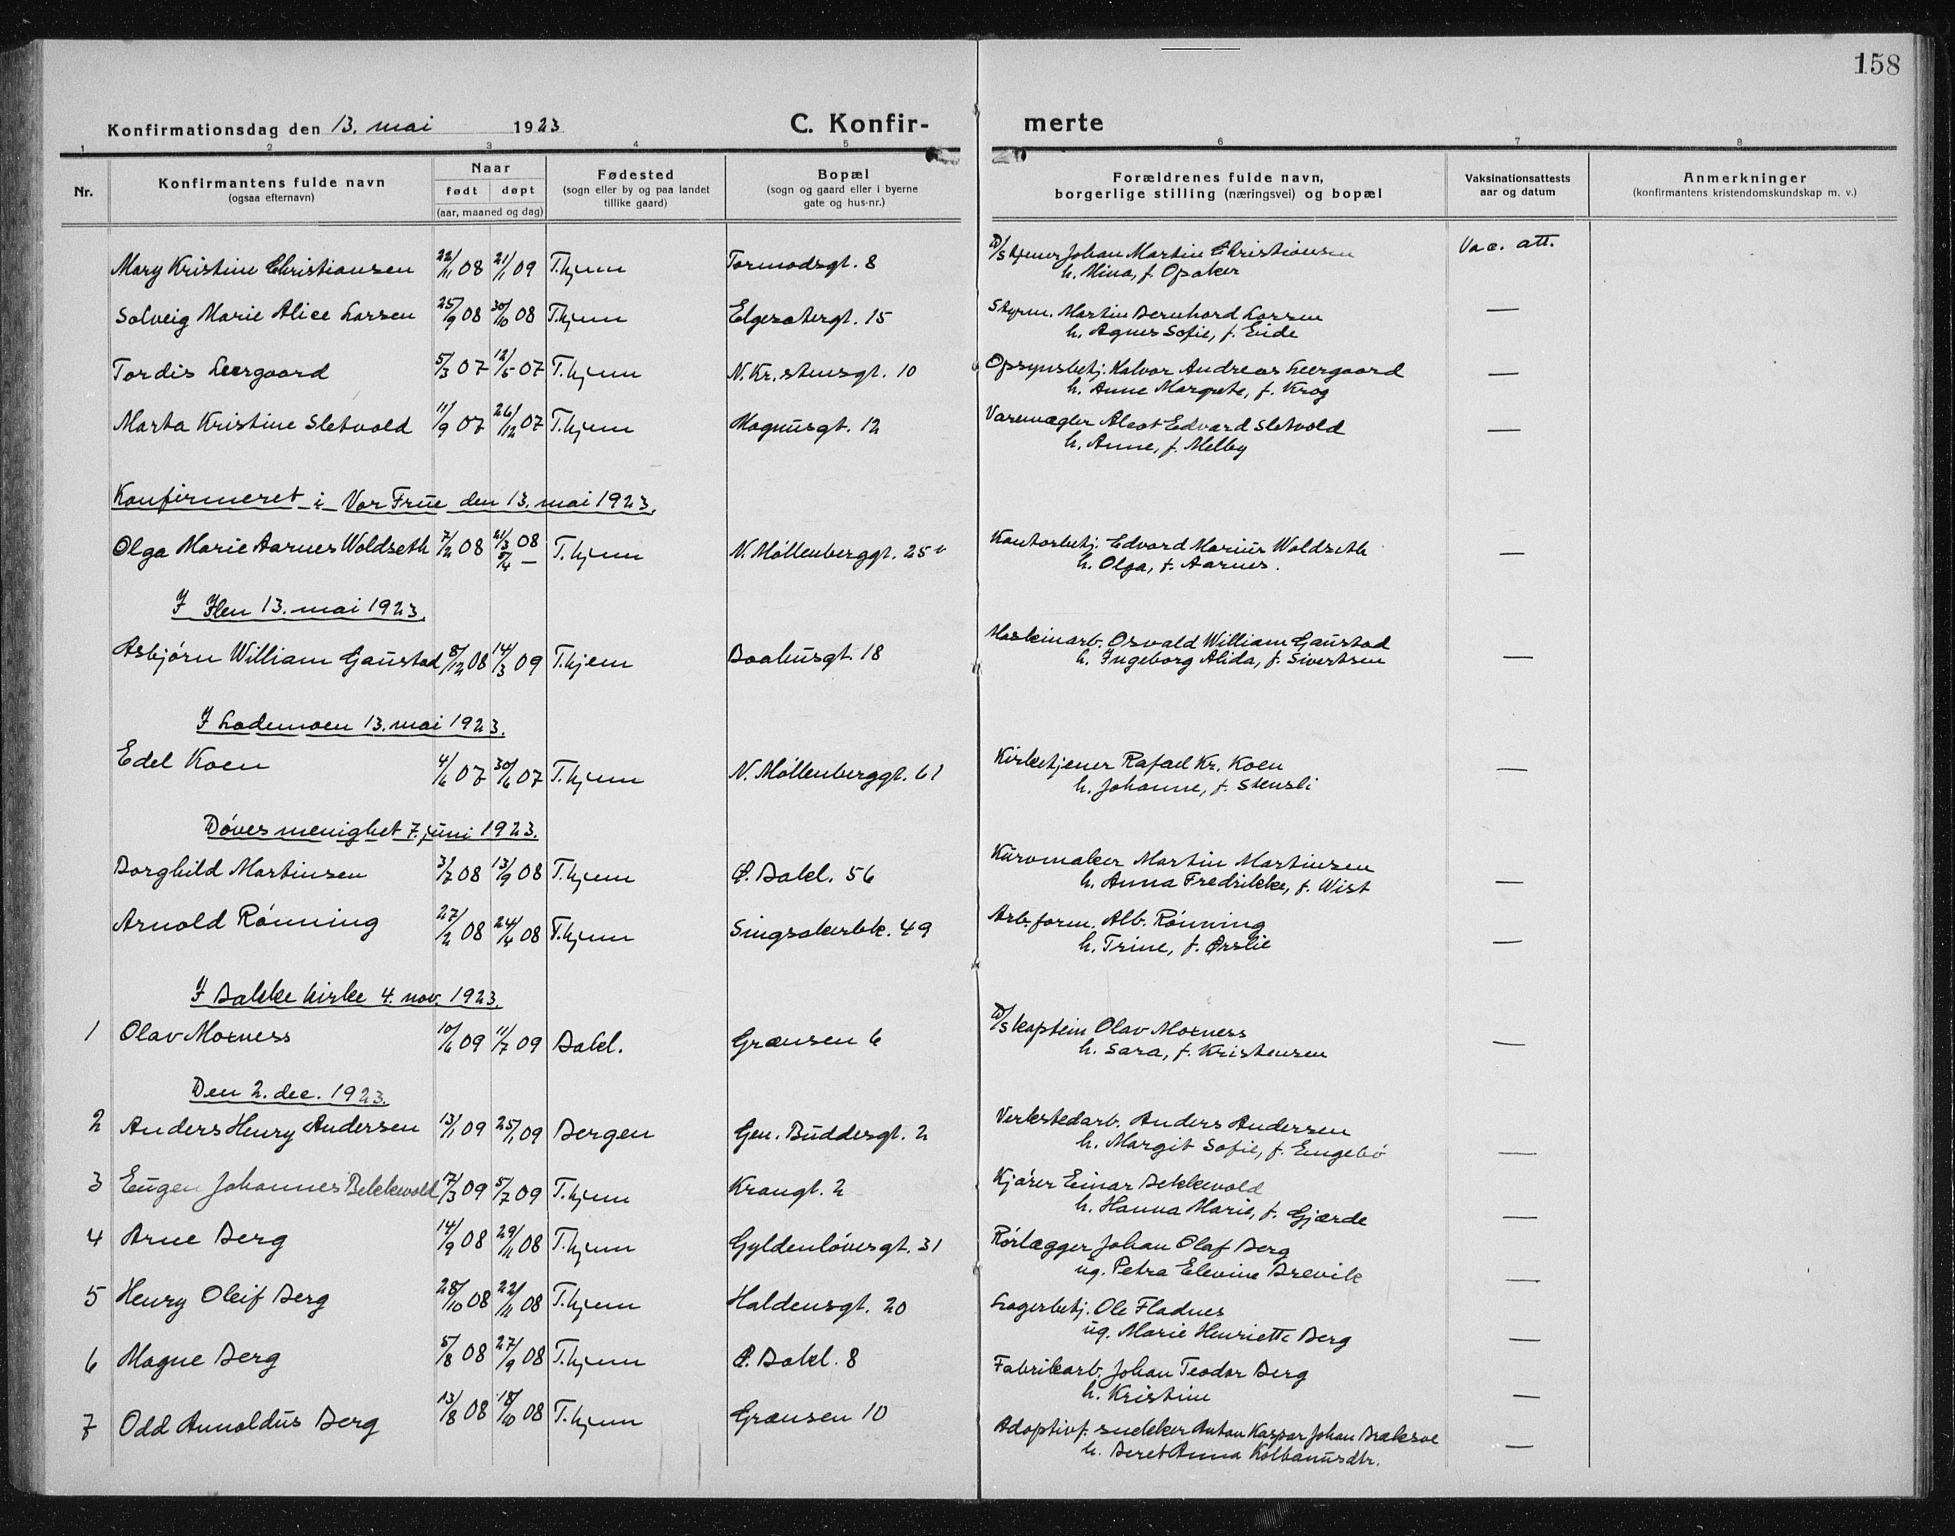 158
Konfirmationsdag den 13. mai 1923 C. Konfir- merte
1 2 3 4 5 6 7 8
Nr. Konfirmantens fulde navn (ogsaa efternavn) Naar født døpt (aar, maaned og dag) Fødested (sogn eller by og paa landet tillike gaard) Bopæl (sogn og gaard eller i byerne gate og hus-nr.) Forældrenes fulde navn, borgerlige stilling (næringsvei) og bopæl Vaksinationsattests aar og datum Anmerkninger (konfirmantens kristendomskundskap m. v.)
Mary Kristine Christiansen 22/11 08 21/1 09 T.hjem Tormodsgt. 8 D/skjener Johan Martin Christiansen Vac. att.
h. Mina, f. Opaker
Solveig Marie Alice Larsen 25/9 08 30/10 08 T.hjem Elgesetergt. 15 Styrm. Martin Bernhard Larsen —
h. Agnes Sofie, f. Eide
Tordis Leergaard 5/3 07 12/5 07 T.hjem N. Kr.stensgt. 10 Opsynsbetj. Halvor Andreas Leergaard —
h. Anne Margrete, f. Krog
Marta Kristine Sletvold 11/9 07 26/12 07 T.hjem Magnusgt. 12 Varemægler Edvard Sletvold —
h. Anne, f. Melby
Konfirmeret i Vor Frue den 13. mai 1923.
Olga Marie Aarnes Woldseth 7/2 08 21/3 08 T.hjem N. Møllenberggt. 25 Kontorbetj. Edvard Marius Woldseth —
5/4 — h. Olga, f. Aarnes.
I Ilen 13. mai 1923.
Asbjørn William Gaustad 8/12 08 14/3 09 T.hjem Baahusgt. 18 Maskinarb. Osvald William Gaustad —
h. Ingeborg Alida, f. Sivertsen
I Lademoen 13. mai 1923.
Edel Koen 4/6 07 30/6 07 T.hjem N. Møllenberggt. 61 Kirketjener Rafael Kr. Koen —
h. Johanne, f. Stensli
Døves menighet 7. juni 1923.
Borghild Martinsen 3/7 08 13/9 08 T.hjem Ø. Bakl. 56 Kurvmaker Martin Martinsen —
h. Anna Fredrikke, f. Wist
Arnold Rønning 27/2 08 24/4 08 T.hjem Singsakerbk. 49 Arb.form. Alb. Rønning —
h. Trine, f. Ørslie
I Bakke kirke 4. nov. 1923.
1 Olav Moxness 10/6 09 11/7 09 Bakl. Grænsen 6 D/skaptein Olav Moxness —
h. Sara, f. Kristensen
Den 2. dec. 1923.
2 Anders Henry Andersen 13/1 09 25/1 09 Bergen Gen. Buddesgt. 2 Verkstedarb. Anders Andersen —
h. Margit Sofie, f. Engebø
3 Eugen Johannes Bekkevold 7/3 09 5/7 09 T.hjem Krangt. 2 Kjører Einar Bekkevold —
h. Hanna Marie, f. Gjærde
4 Arne Berg 14/9 08 29/11 08 T.hjem Gyldenløvesgt. 31 Rørlægger Johan Olaf Berg —
ug. Petra Elevine Brevik
5 Henry Oleif Berg 28/10 08 22/11 08 T.hjem Haldensgt. 20 Lagerbetj. Ole Fladnes —
ug. Marie Henriette Berg
6 Magne Berg 5/8 08 27/9 08 T.hjem Ø. Bakl. 8 Fabrikarb. Johan Teodor Berg —
h. Kristine
7 Odd Arnoldus Berg 13/8 08 18/10 08 T.hjem Grænsen 10 Adoptivf. snekker Anton Kaspar Johan —
h. Beret Anna